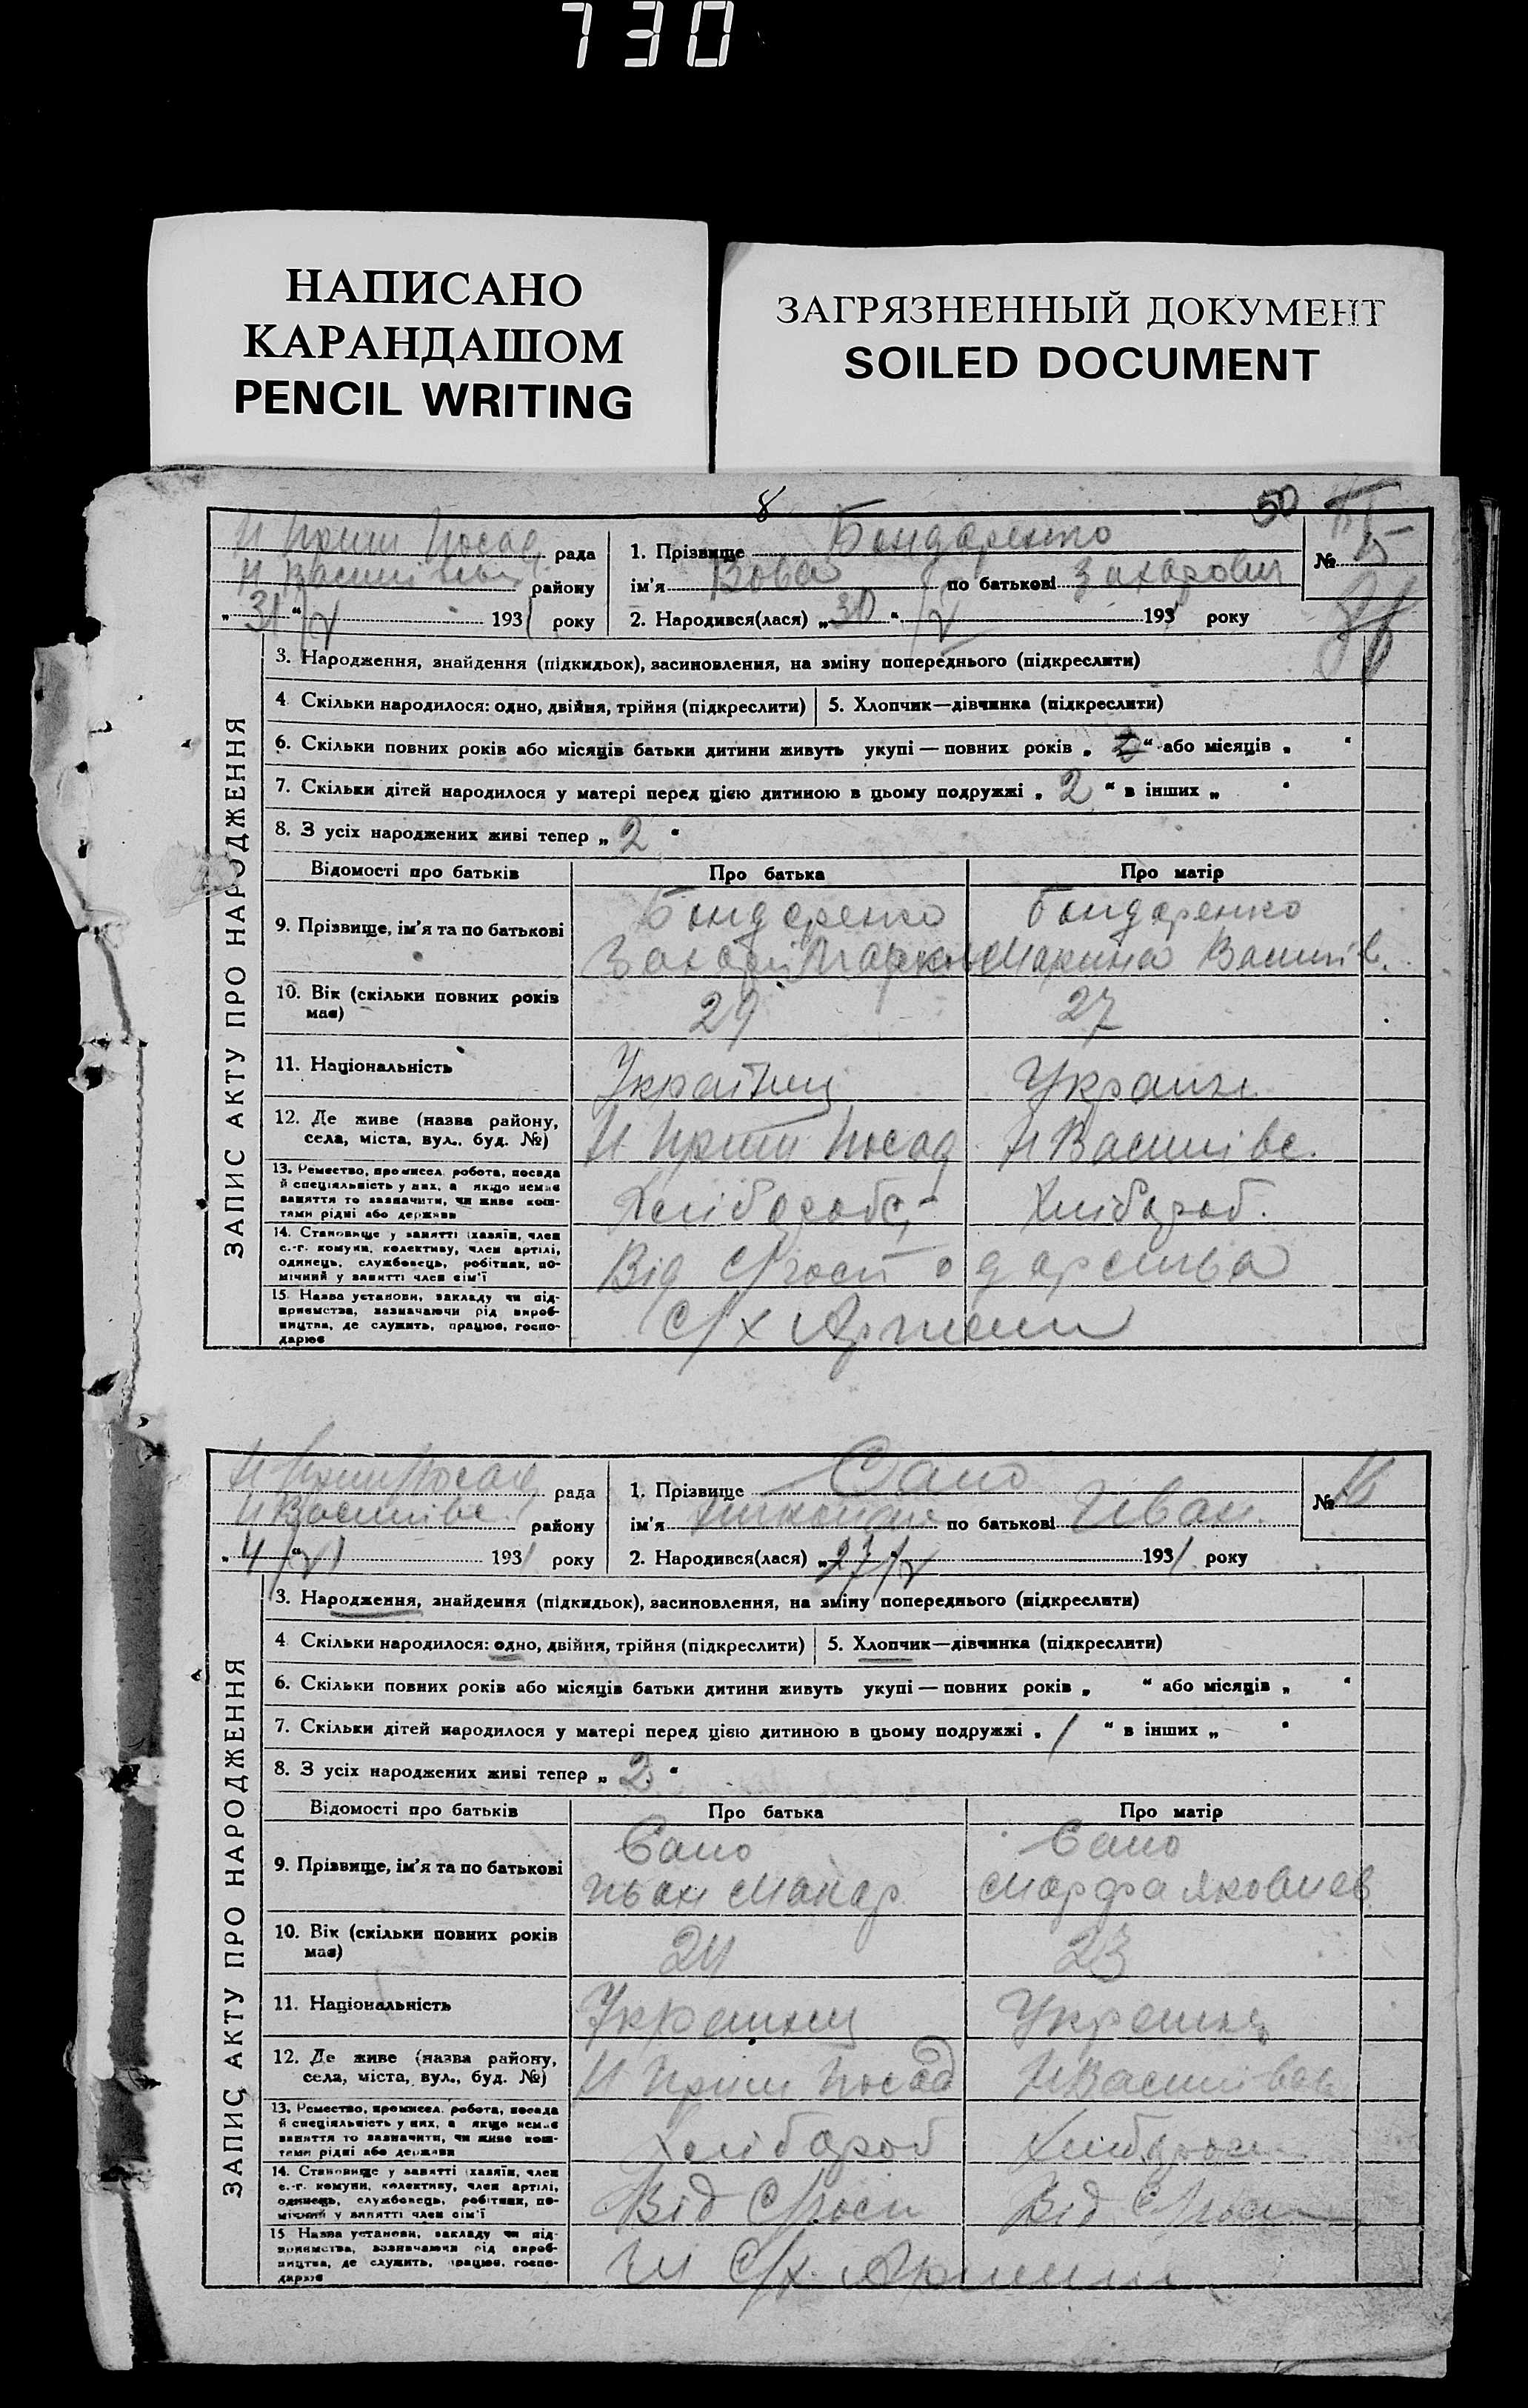 730
НАПИСАНО
КАРАНДАШОМ
PENCIL WRITING
ЗАГРЯЗНЕННЫЙ ДОКУМЕНТ
SOILED DOCUMENT
8 50
Н Посад рада
Н Василівськ району
„31“ V 1931 року
1. Прізвище Бондаренко
ім'я Вова по батькові Захарович
2. Народився(лася) „30“ V 193 року
№ 15
ЗАПИС АКТУ ПРО НАРОДЖЕННЯ
3. Народження, знайдення (підкидьок), засиновлення, на зміну попереднього (підкреслити)
4 Скільки народилося: одно, двійня, трійня (підкреслити) 5. Хлопчик—дівчинка (підкреслити)
6. Скільки повних років або місяців батьки дитини живуть укупі — повних років „ “ або місяців „ “
7. Скільки дітей народилося у матері перед цією дитиною в цьому подружжі „ 2 “ в інших „ “
8. З усіх народжених живі тепер „ 2 “
Відомості про батьків Про батька Про матір
9. Прізвище, ім'я та по батькові Бондаренко Бондаренко
Захарі Марков Марина Василів.
10. Вік (скільки повних років має) 29 27
11. Національність Українц Украін
12. Де живе (назва району, села, міста, вул., буд. №) Н Посад Н Василівс.
13. Ремество, промисел, робота, посада
й спеціяльність у них, а якщо немає
заняття то зазначити, чи живе кош-
тами рідні або держави
Хліборобс Хлібороб.
14. Становище у занятті (хазяїн, член
с.-г. комуни, колективу, член артілі,
одинець, службовець, робітник, по-
мічний у занятті член сім'ї
Від С/госп одарства
15. Назва установи, закладу чи під-
приємства, зазначаючи рід вироб-
ництва, де служить, працює, госпо-
дарює
С/х Артели
Н Посад рада
Н Василівс. району
„4“ VI 1931 року
1. Прізвище Сало
ім'я Николай по батькові Иван.
2. Народився(лася) „27“ V 1931 року
№ 16
ЗАПИС АКТУ ПРО НАРОДЖЕННЯ
3. Народження, знайдення (підкидьок), засиновлення, на зміну попереднього (підкреслити)
4 Скільки народилося: одно, двійня, трійня (підкреслити) 5. Хлопчик—дівчинка (підкреслити)
6. Скільки повних років або місяців батьки дитини живуть укупі — повних років „ “ або місяців „ “
7. Скільки дітей народилося у матері перед цією дитиною в цьому подружжі „ 1 “ в інших „ “
8. З усіх народжених живі тепер „ 2 “
Відомості про батьків Про батька Про матір
9. Прізвище, ім'я та по батькові Сало Сало
Иван Макар. Марфа Яковлев
10. Вік (скільки повних років має) 24 23
11. Національність Украинц Украинц
12. Де живе (назва району, села, міста, вул., буд. №) Н Посад Н Василівсь
13. Ремество, промисел, робота, посада
й спеціяльність у них, а якщо немає
заняття то зазначити, чи живе кош-
тами рідні або держави
Хлібороб
14. Становище у занятті (хазяїн, член
с.-г. комуни, колективу, член артілі,
одинець, службовець, робітник, по-
мічний у занятті член сім'ї
Від С/госп Від С/госп
15 Назва установи, закладу чи під-
приємства, зазначаючи рід вироб-
ництва, де служить, працює, госпо-
дарює
Чл С/х. Артели